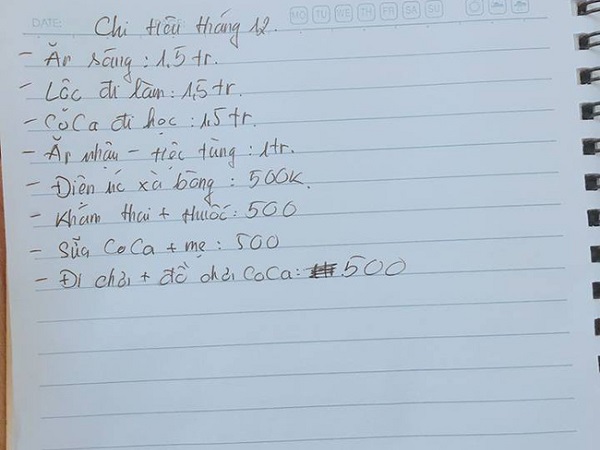 DATE: MO TU WE TH FR SA SU
Chi tiêu tháng 12.
- Ăn sáng : 1,5 tr.
- Lộc đi làm : 1,5 tr.
- CôCa đi học : 1,5 tr.
- Ăn nhậu - tiệc tùng : 1tr.
- Điện nước xà bông : 500K.
- Khám thai + thuốc : 500
- Sữa CoCa + mẹ : 500
- Đi chơi + đồ chơi CoCa: 500